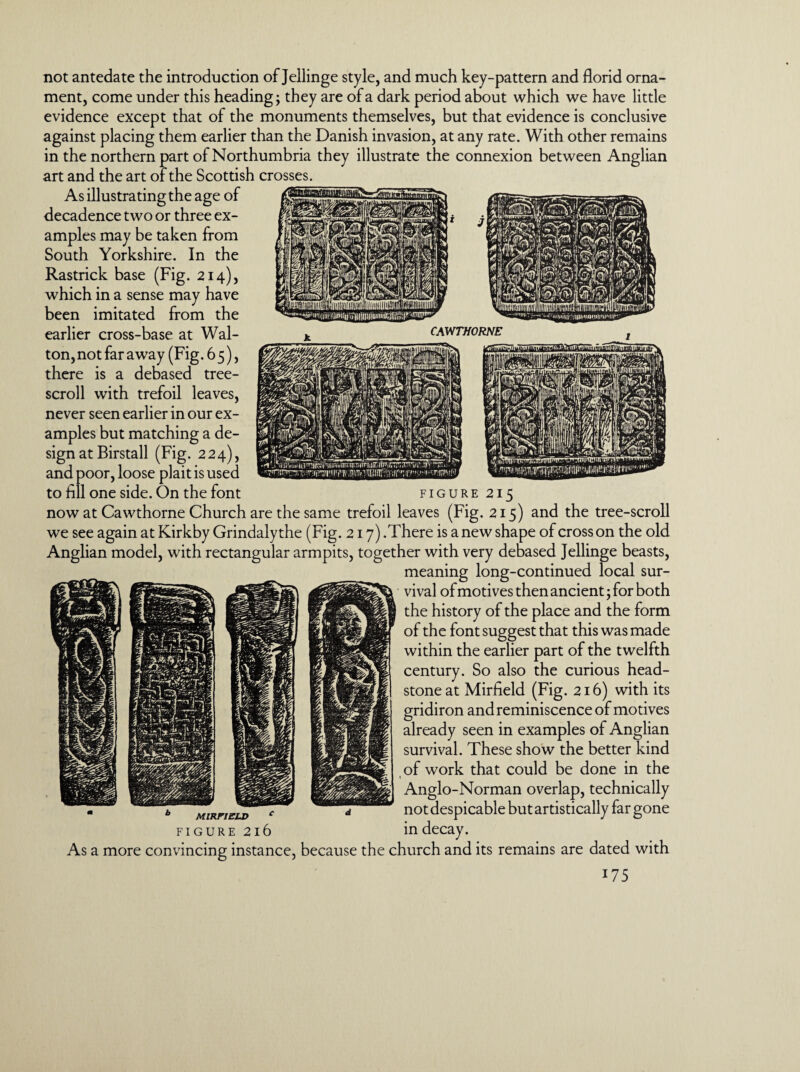 not antedate the introduction of Jellinge style, and much key-pattern and florid orna-
ment, come under this heading; they are of a dark period about which we have little
evidence except that of the monuments themselves, but that evidence is conclusive
against placing them earlier than the Danish invasion, at any rate. With other remains
in the northern part of Northumbria they illustrate the connexion between Anglian
art and the art of the Scottish crosses.
As illustrating the age of
decadence two or three ex-
amples may be taken from
South Yorkshire. In the
Rastrick base (Fig. 214),
which in a sense may have
been imitated from the
earlier cross-base at Wal-
ton, not far away (Fig. 65),
there is a debased tree-
scroll with trefoil leaves,
never seen earlier in our ex-
amples but matching a de-
sign at Birstall (Fig. 224),
and poor, loose plait is used
to fill one side. On the font
i j
k CAWTHORNE l
FIGURE 215
now at Cawthorne Church are the same trefoil leaves (Fig. 215) and the tree-scroll
we see again at Kirkby Grindalythe (Fig. 217). There is a new shape of cross on the old
Anglian model, with rectangular armpits, together with very debased Jellinge beasts,
meaning long-continued local sur-
vival of motives then ancient; for both
the history of the place and the form
of the font suggest that this was made
within the earlier part of the twelfth
century. So also the curious head-
stone at Mirfield (Fig. 216) with its
gridiron and reminiscence of motives
already seen in examples of Anglian
survival. These show the better kind
of work that could be done in the
Anglo-Norman overlap, technically
not despicable but artistically far gone
in decay.
a b MIRFIELD c d
FIGURE 216
As a more convincing instance, because the church and its remains are dated with
175